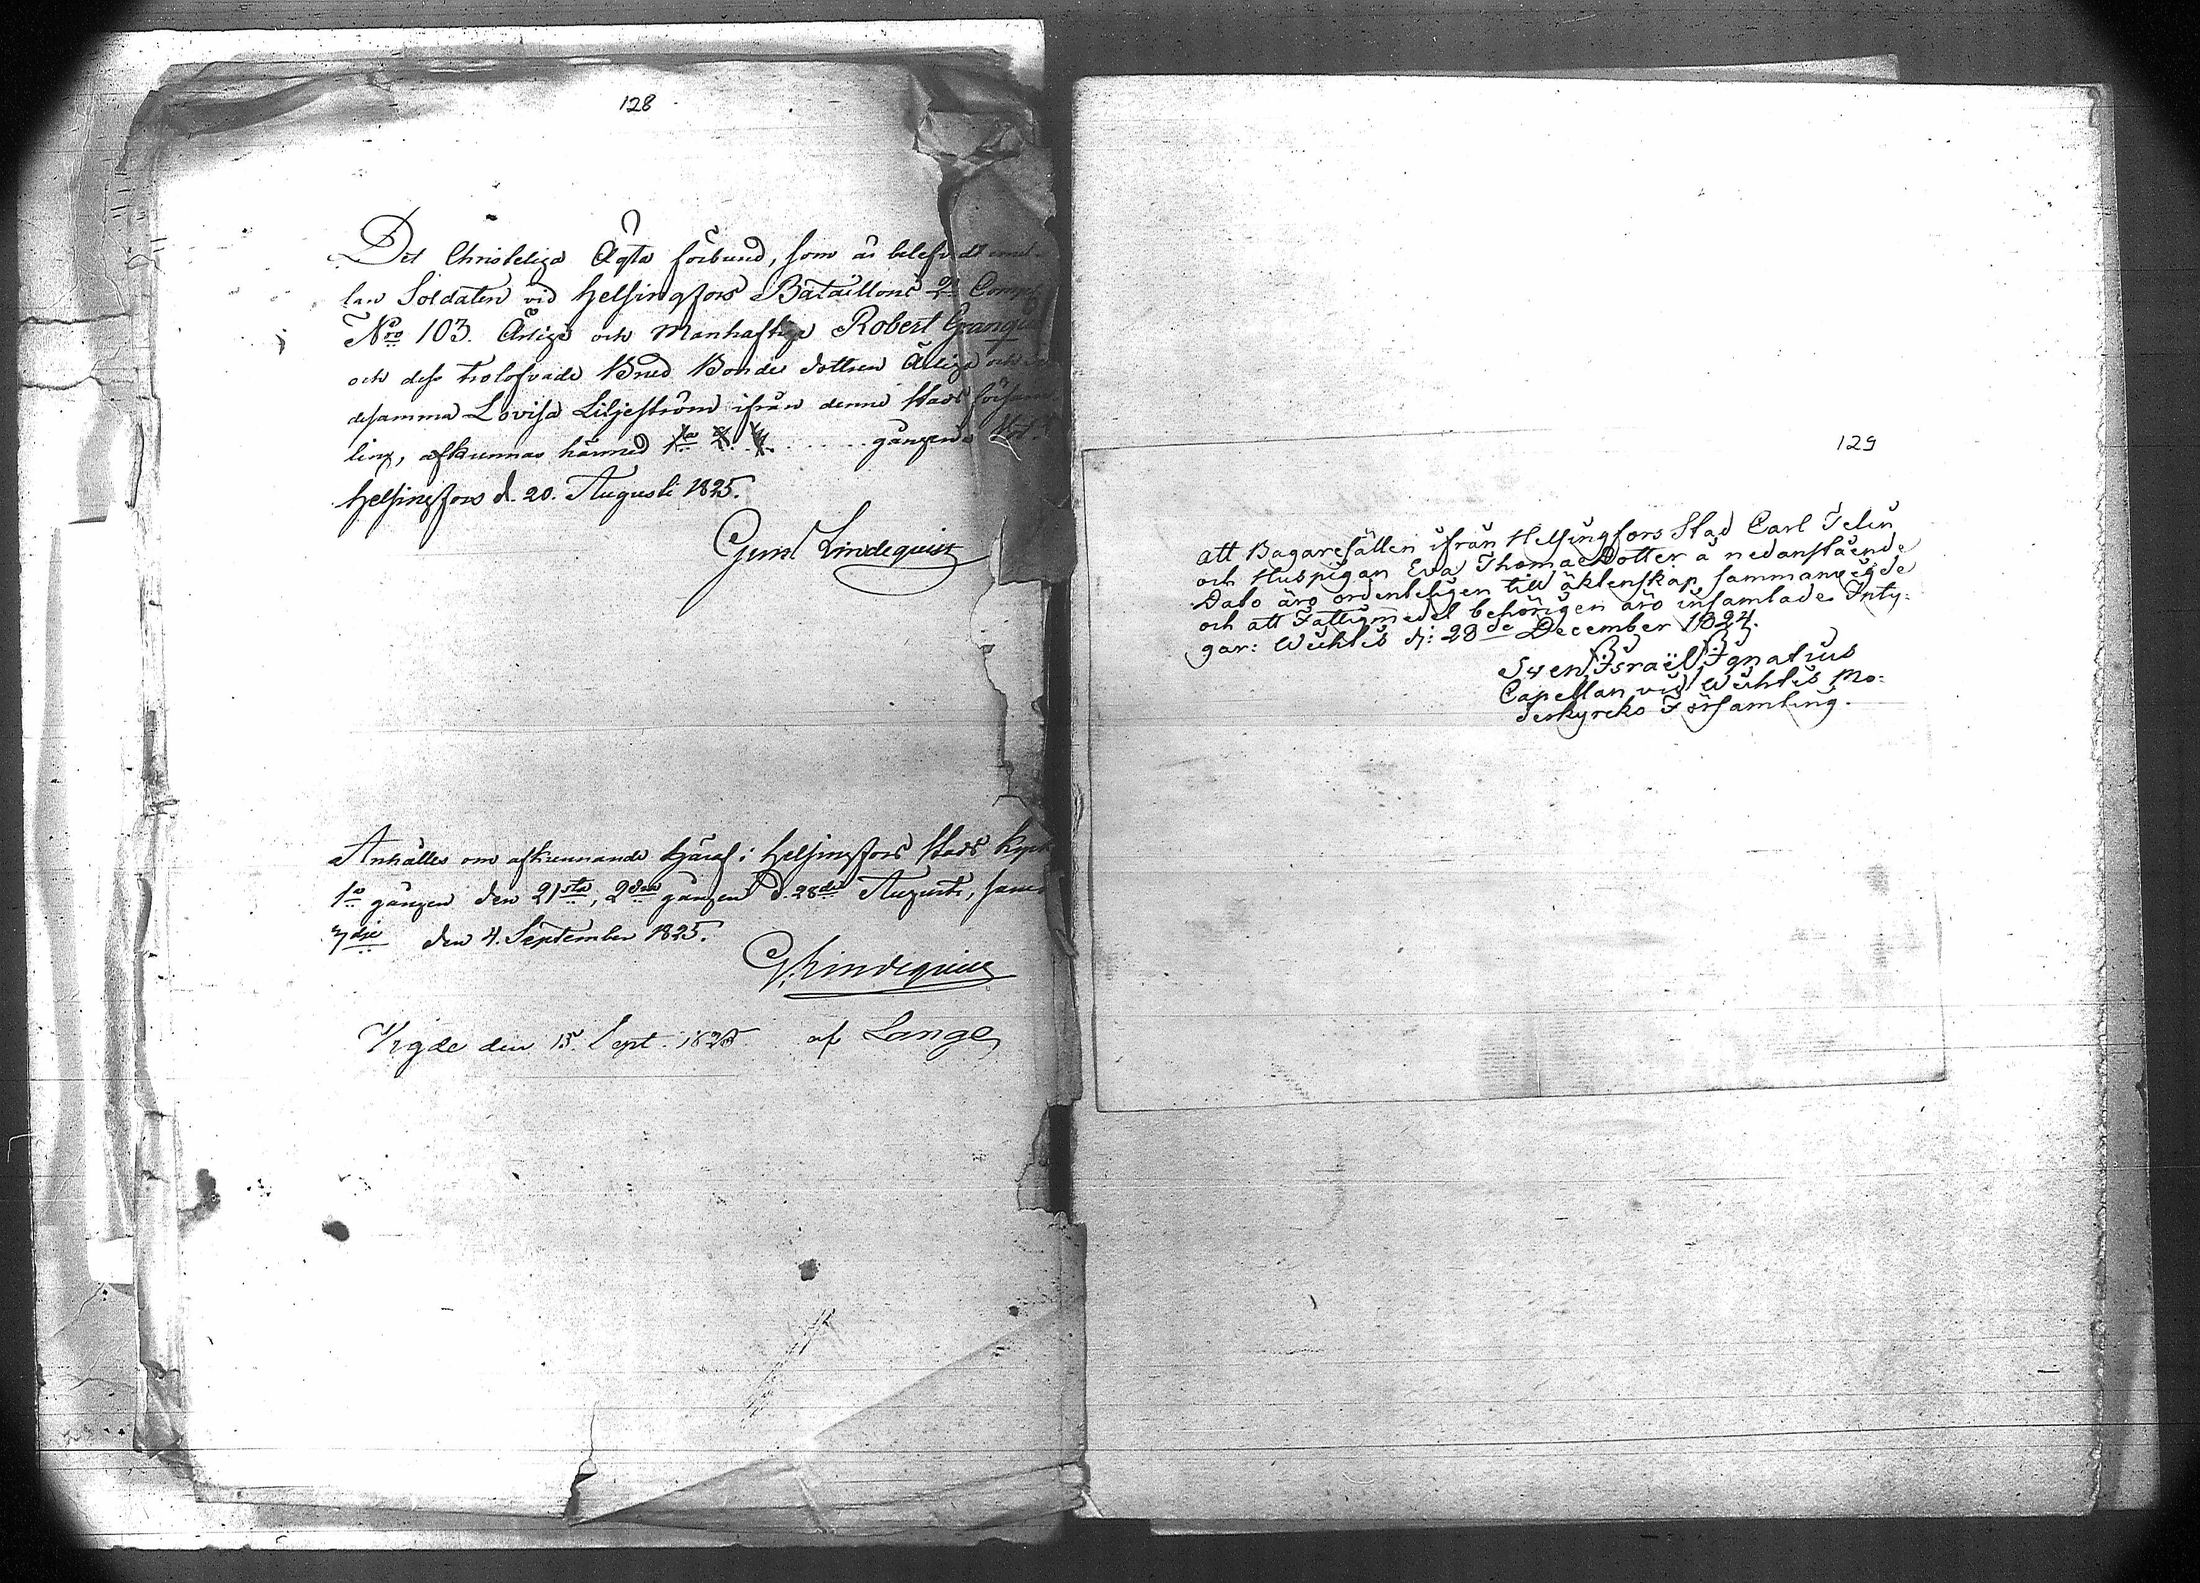 128
Det Christeliga Ägta förbund, som är belefvadt emel-
lan Soldaten vid Helsingfors Bataillons 2a Comp
No 103. Ärlige och Manhaftige Robert Granqui
och dess trolofvade Brud Bonde dottren Ärliga och
desamma Lovisa Liljeström ifrån denne Stads försam
ling, afkunnas härmed 1a 2 3 gången
Helsingfors d. 20. Augusti 1825.
Gust Lindequist
Anhålles om afkunnande häraf i Helsingfors Stads Kyrk
1a gången den 21sta, 2dra gången d. 28de Augusti, samt
3dje den 4. September 1825.
G. Lindequist
Vigde den 15 Sept. 1825 af Lange
129
att Bagaregesällen ifrån Helsingfors Stad Carl Telin
och Huspigan Eva Thomae Dotter å nedanstående
Dato äro ordenteligen till äktenskap sammanvigde
och att Fattigmedel behörigen äro insamlade Inty-
gar: Wichtis d: 28de December 1824.
Swen Israël Ignatius
Capellan vid Wichtis Mo-
derkyrcko Församling.